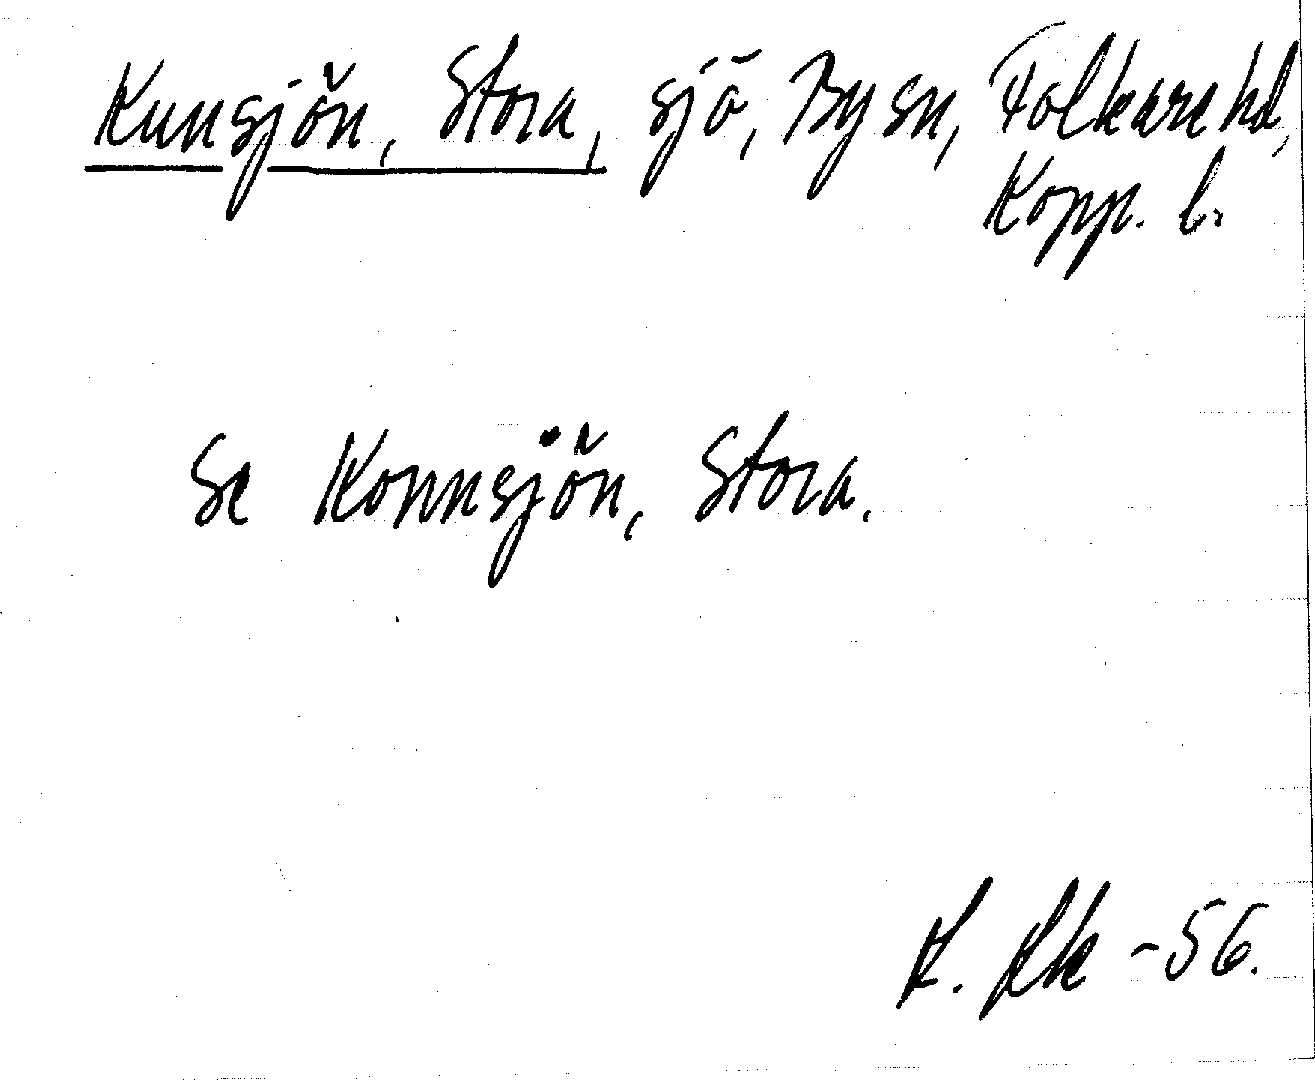 Kunsjön, Stora, sjö, By sn, Folkare hd,
Kopp. l.
Se Konnsjön, Stora.
-56.